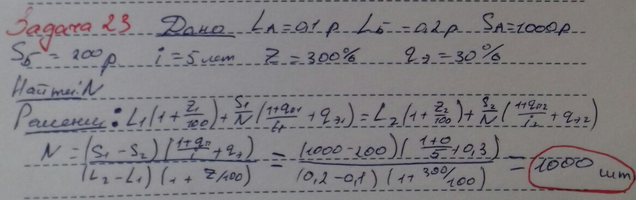 Задача 23 Дано LА=0,1р LБ=0,2р SА=1000р
SБ=200р i=5лет Z=300% qэ=30%
Найти:N
Решение: L₁(1+Z₁/100)+S₁/N(1+qп1/i₁+qэ1)=L₂(1+Z₂/100)+S₂/N(1+qп2/i₂+qэ2)
N=(S₁-S₂)(1+qп/i+qэ)/(L₂-L₁)(1+Z/100)=(1000-200)(1+0/5+0,3)/(0,2-0,1)(1+300/100)=1000 шт